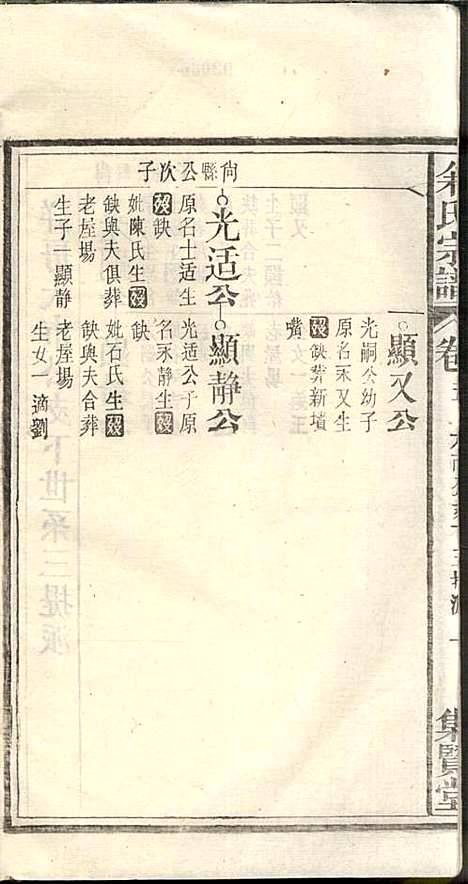 余氏宗譜
卷
集賢堂
顯又公
光嗣公幼子
原名永又生
歿缺葬新墳
嘴
尙縣公次子
光适公
原名士适生
歿缺
妣陳氏生歿
缺與夫俱葬
老屋場
生子 顯静
顯静公
光适公子原
名永静生歿
缺
妣石氏生歿
缺與夫合葬
老屋場
生女一適劉